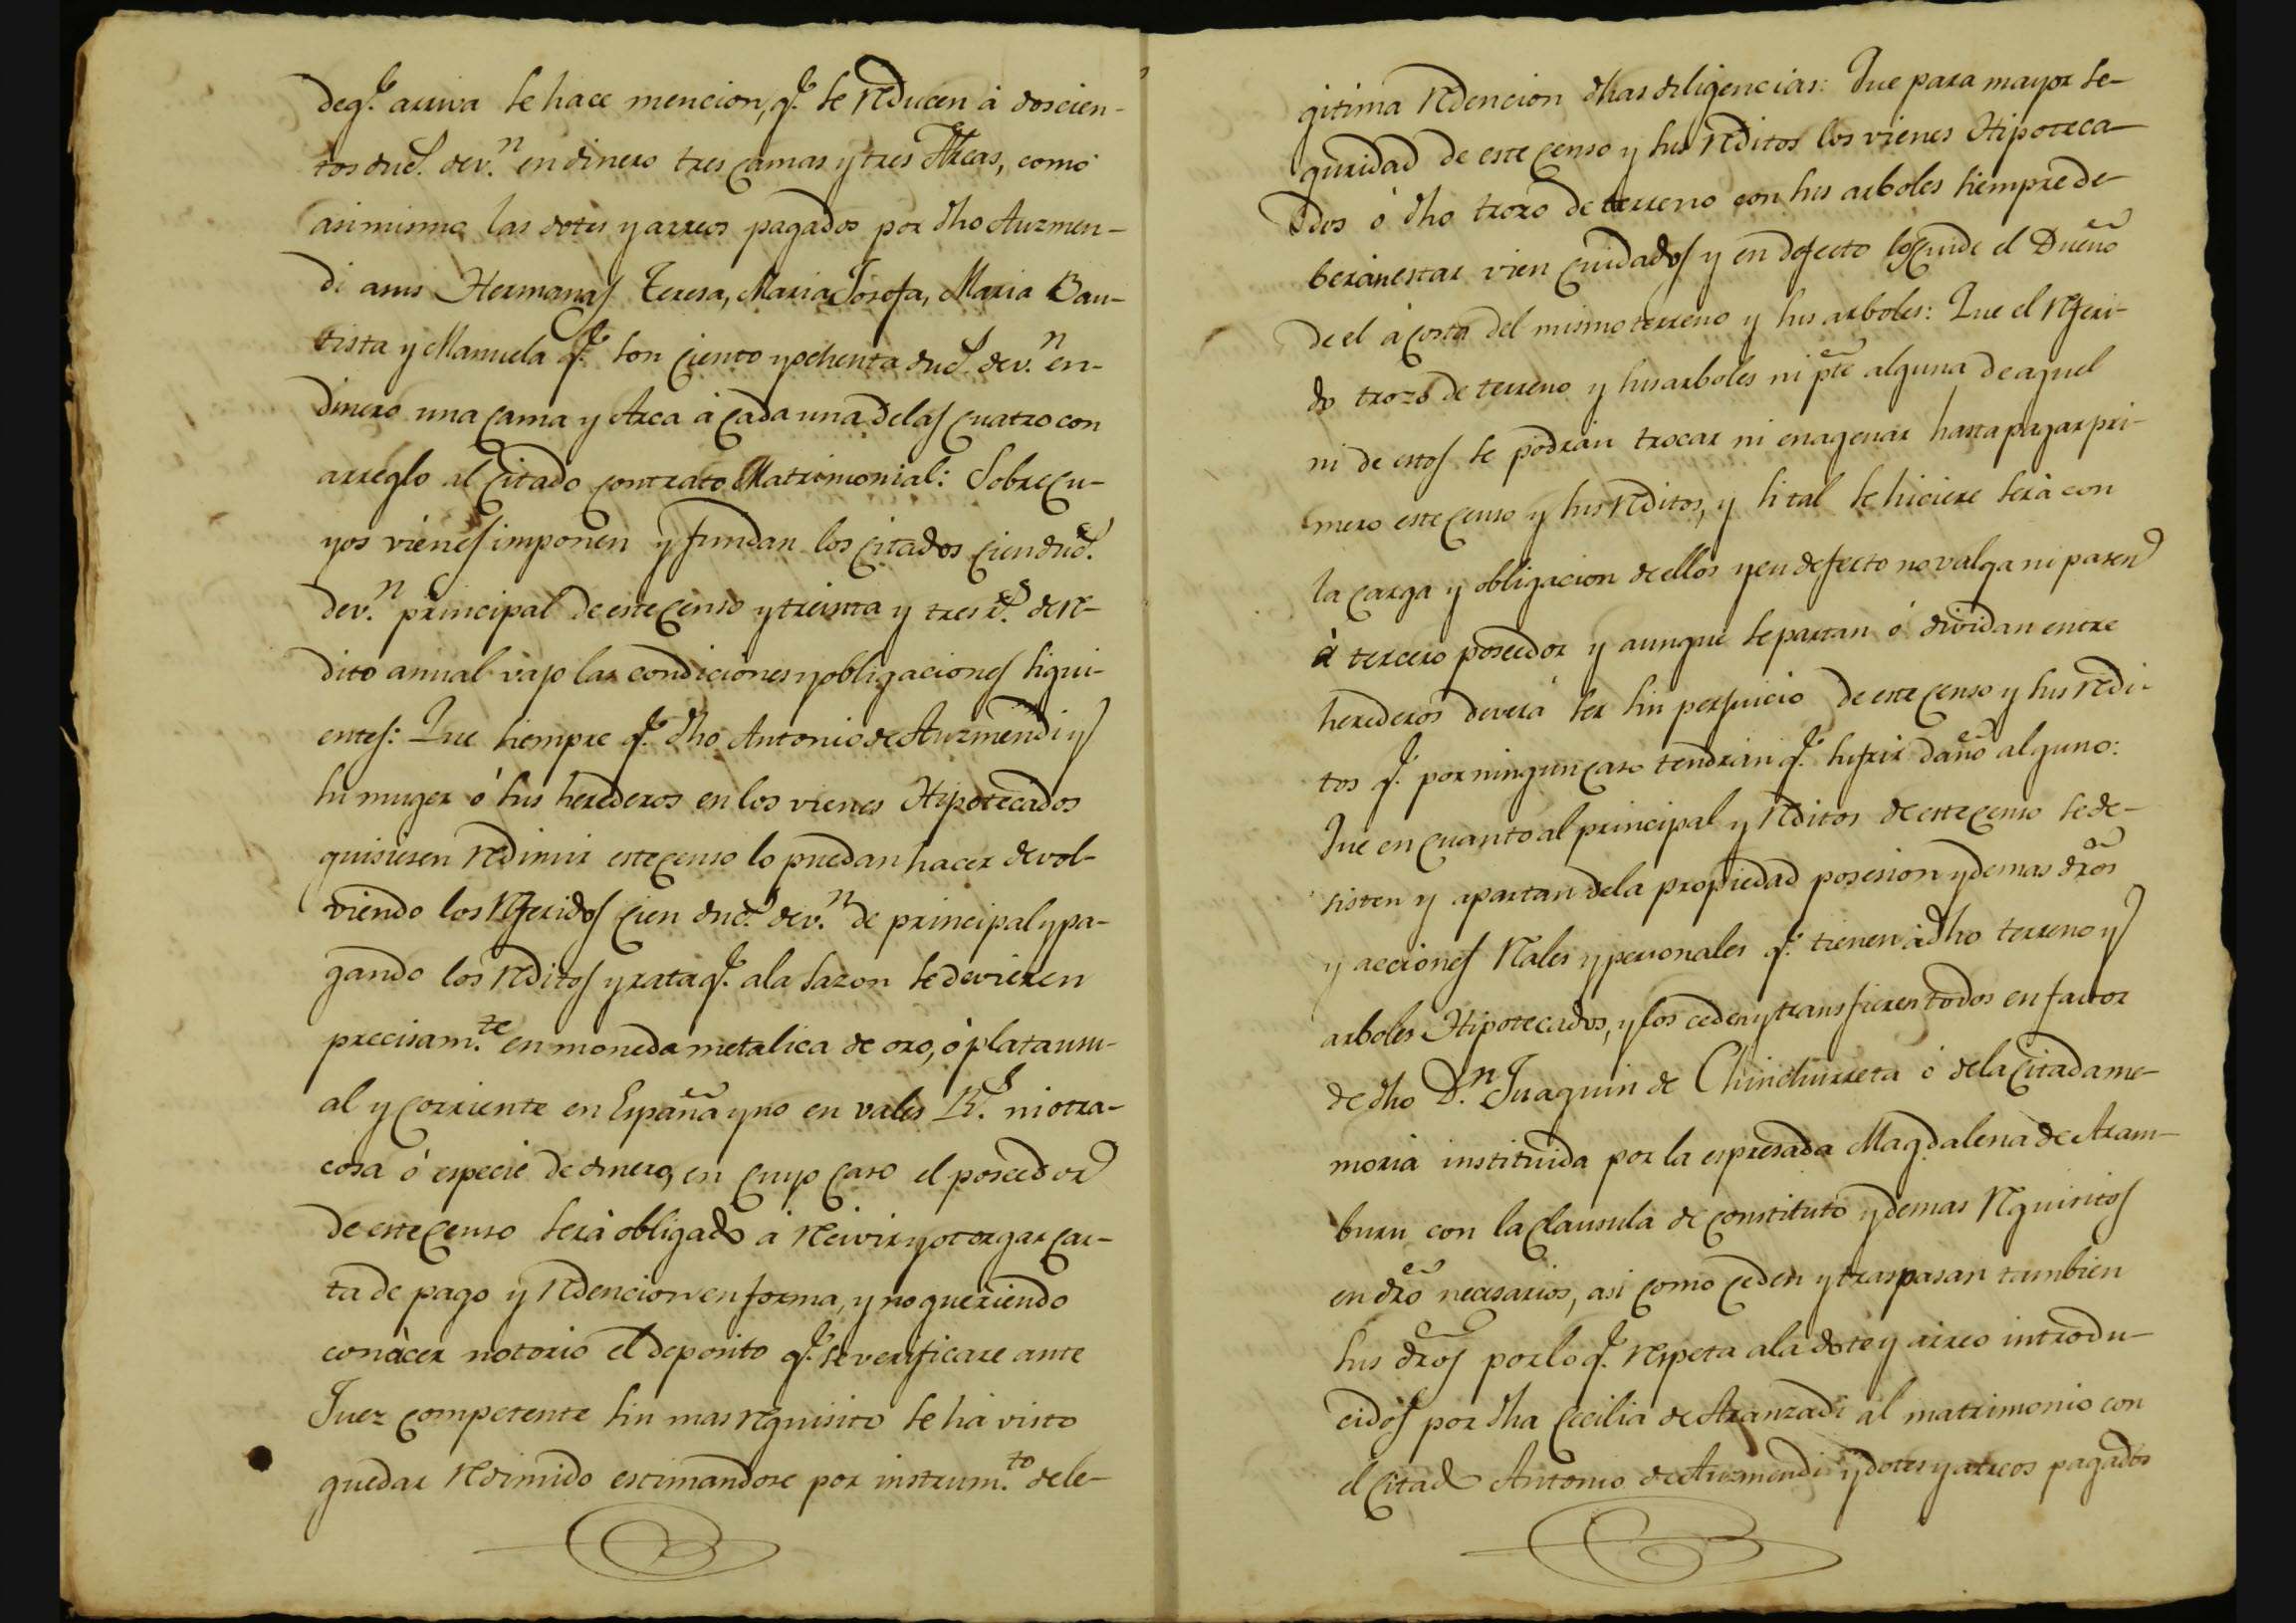 deq.e arriva se hace mencion, q.e se reducen à doscien-
tos duc.s de v.n en dinero tres camas y tres Arcas, como
asimismo las dotes y arreos pagados por dho Auzmen-
di asus Hermanas Teresa, Maria Josefa, Maria Bau-
tista y Manuela q.e son ciento y ochenta duc.s de v.n en-
dinero una cama y Arca à cada una de las cuatro con
arreglo al citado contrato Matrimonial: Sobre cu-
yos vienes imponen y fundan los citados cien duc.s
de v.n principal de este censo y treinta y tres r.s de re-
dito anual vajo las condiciones y obligaciones sigui-
entes: Que siempre q.e dho Antonio de Auzmendi y
su muger ó sus herederos en los vienes Hipotecados
quisiesen redimir este censo lo puedan hacer devol-
viendo los referidos cien duc.s de v.n de principal y pa-
gando los reditos y rata q.e ala sazon se devieren
precisam.te en moneda metalica de oro, ó plata usu-
al y corriente en España y no en vales R.s ni otra-
cosa ó especie de dinero, en cuyo caso el poseedor
de este censo serà obligado à reicivir y otorgar car-
ta de pago y redencion en forma, y no queriendo
conàcer notorio el deposito q.e se verificare ante
Juez competente sin mas requisito se ha visto
quedar redimido estimandose por instrum.to de le-
gitima redencion dhas diligencias: Que para mayor se-
guridad de este censo y sus reditos los vienes Hipoteca-
dos ó dho trozo de terreno con sus arboles siempre de-
beràn estar vien cuidados y en defecto los cuide el Dueño
de el à costa del mismo terreno y sus arboles: Que el referi-
do trozo de terreno y sus arboles ni pte alguna de aquel
ni de estos se podràn trocar ni enagenar hasta pagar pri-
mero este censo y sus reditos, y si tal se hiciere serà con
la carga y obligacion de ellos y en defecto no valga ni pasen
à tercero poseedor y aunque se partan ó dividan entre
herederos deverà ser sin perjuicio de este censo y sus redi-
tos q.e por ningun caso tendràn q.e sufrir daño alguno:
Que en cuanto al principal y reditos de este censo se de-
sisten y apartan dela propiedad posesion y demas dros
y acciones reales y personales q.e tienen à dho terreno y
arboles Hipotecados, y los ceden y transfieren todos en favor
de dho D.n Juaquin de Chinchurreta ó dela citada me-
moria instituida por la espresada Magdalena de Aram-
buru con la clausula de constituto y demas requisitos
en dro necesarios, asi como ceden y traspasan tambien
sus dros por lo q.e respeta ala dote y arreo introdu-
cidos por dha Cecilia de Aranzadi al matrimonio con
el citado Antonio de Auzmendi y dotes y arreos pagados